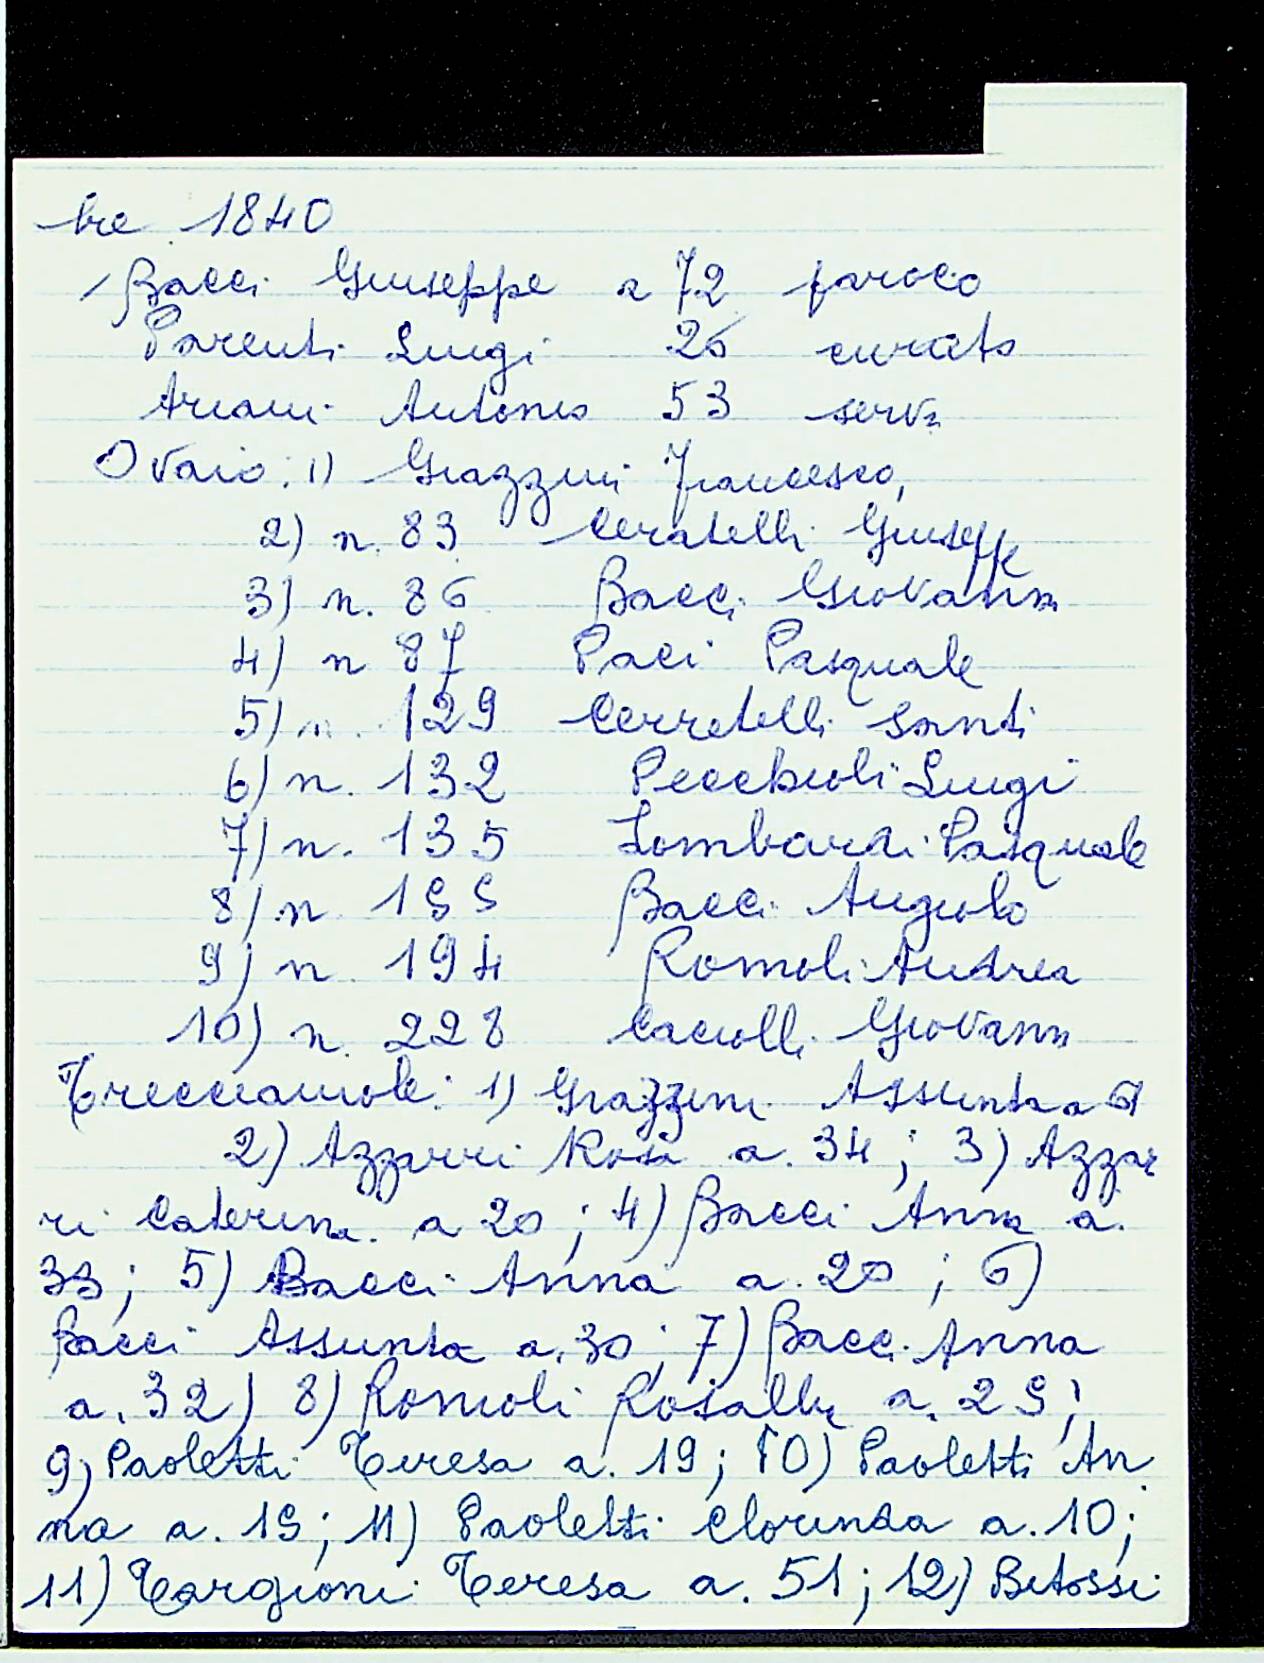 bre 1840
Bacci Giuseppe a 72 paroco
Parenti Luigi 26 curato
Ariani Antonio 53 servo
Ovaio: 1) Grazzini Francesco,
2) n. 83 Ceratelli Giuseppe
3) n. 86 Bacci Giovanni
4) n 87 Paci Pasquale
5) n. 129 Cerretelli Santi
6) n. 132 Pecchioli Luigi
7) n. 135 Lombardi Pasquale
8) n 155 Bacci Angiolo
9) n. 194 Romoli Andrea
10) n. 228 Caciolli Giovanni
Trecciaiuole: 1) Grazzini Assunta a
2) Azzarri Rosa a. 34; 3) Azzar
ri Caterina a 20; 4) Bacci Anna a.
33; 5) Bacci Anna a. 20; 6)
Bacci Assunta a. 30; 7) Bacci Anna
a. 32) 8) Romoli a. 25;
9) Paoletti Teresa a. 19; 10) Paoletti An
na a. 15; 11) Paoletti Clorinda a. 10;
11) Targioni Teresa a. 51; 12) Bitossi